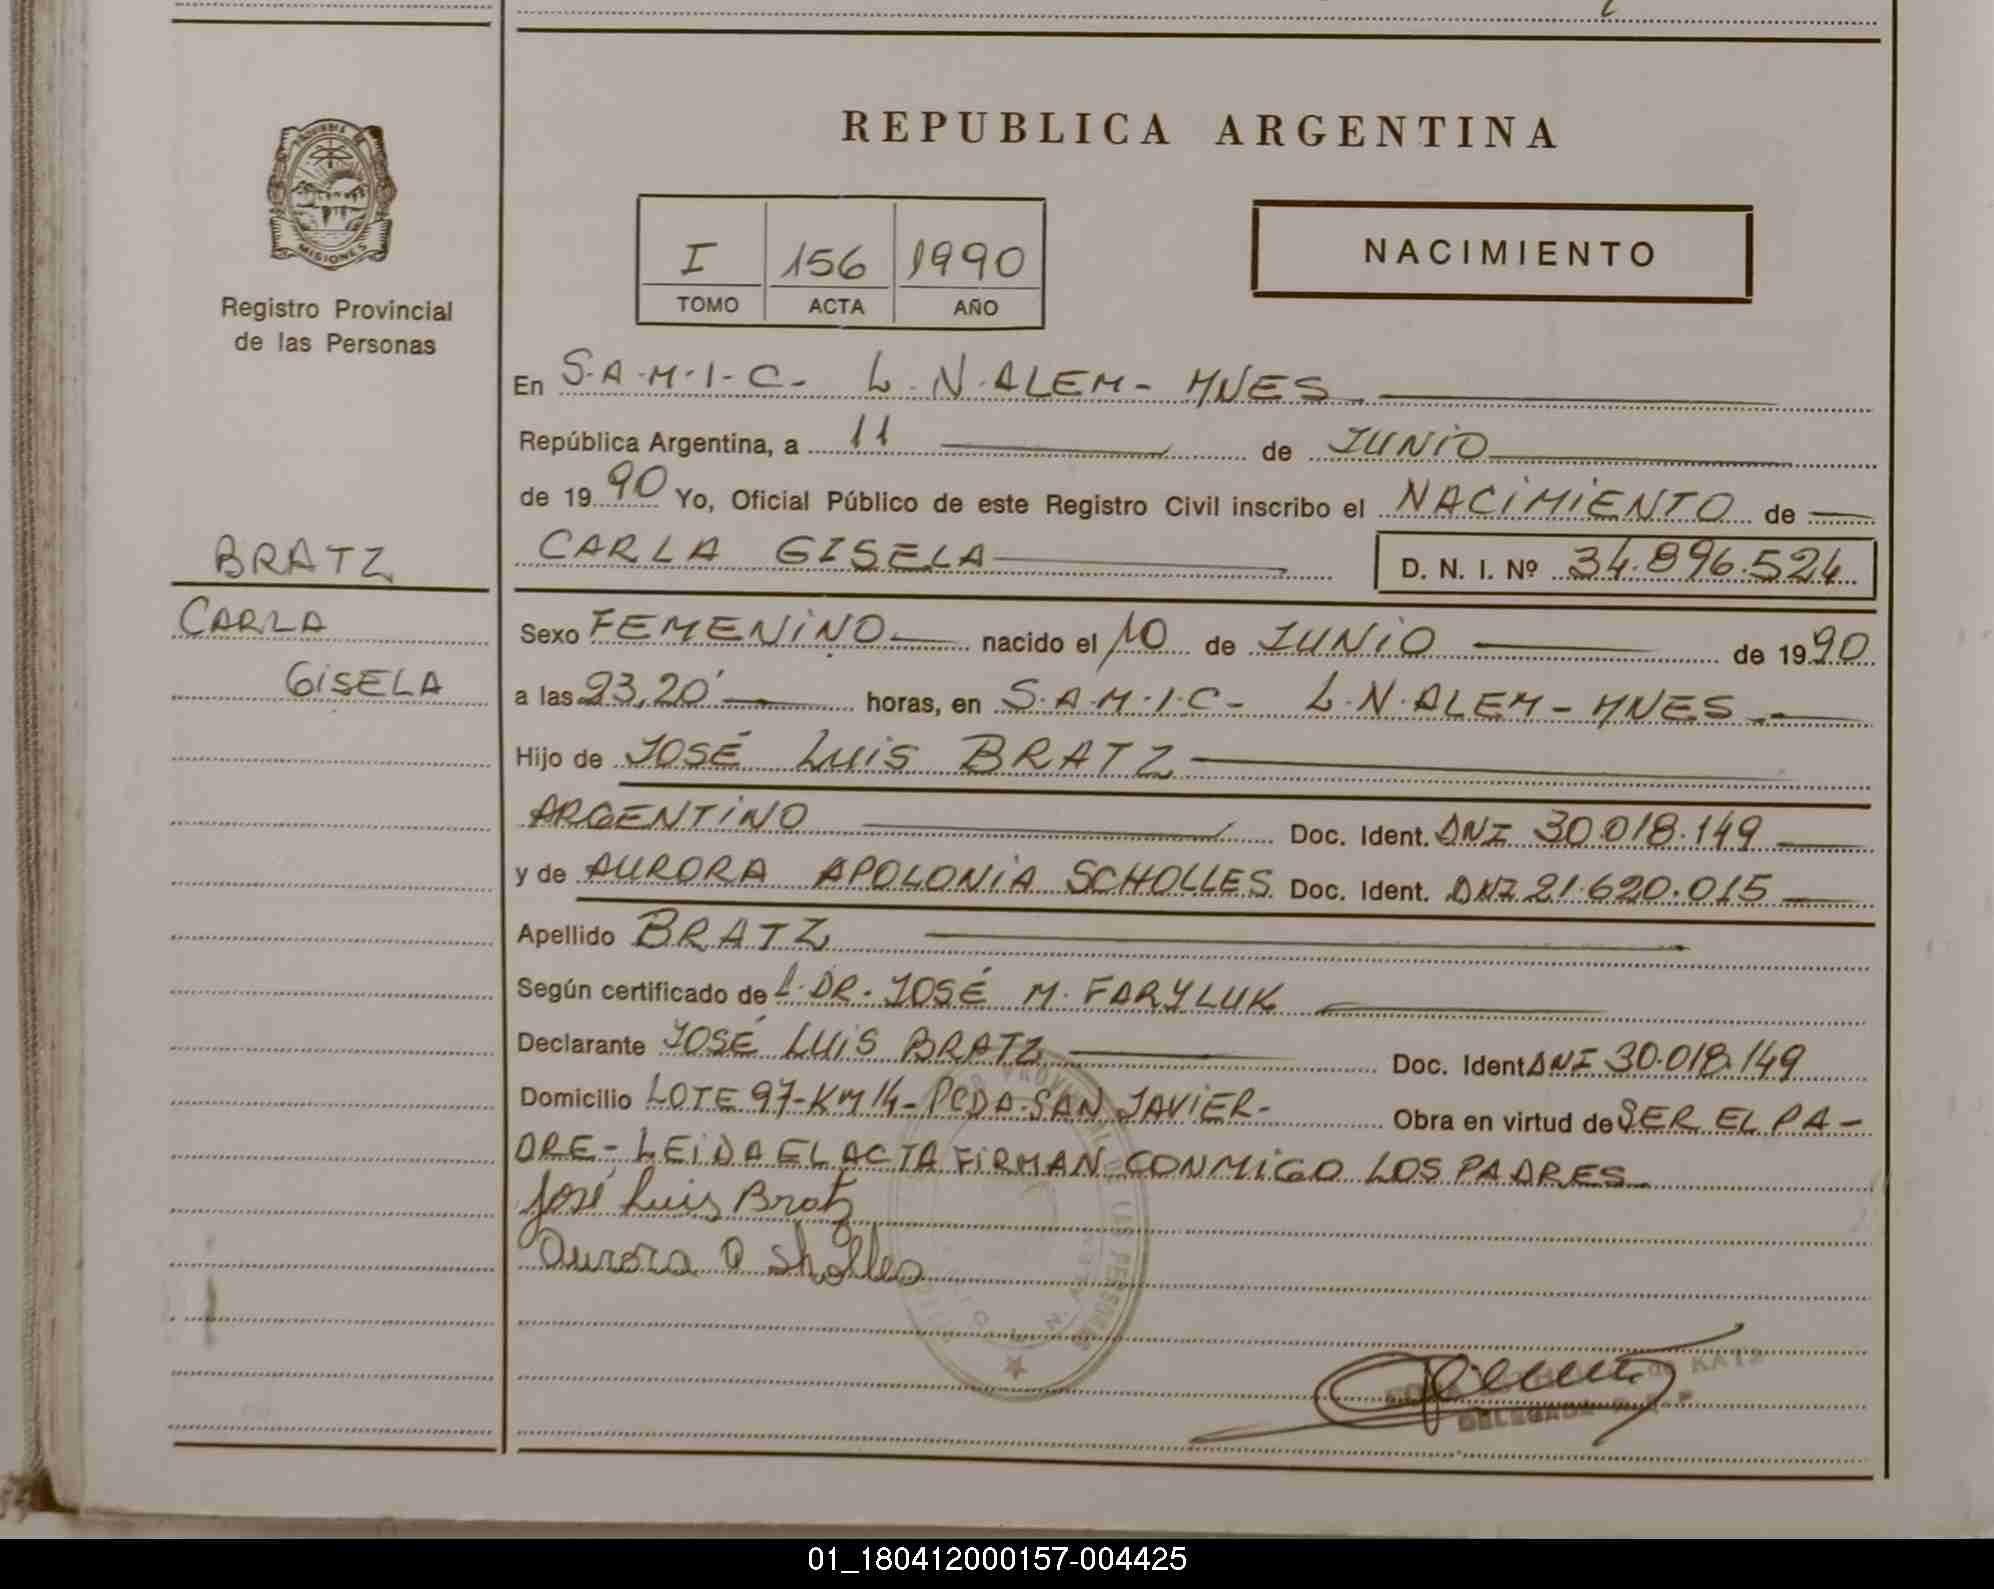 REPUBLICA ARGENTINA
PROVINCIA DE
MISIONES
Registro Provincial
de las Personas
I 156 1990
TOMO ACTA AÑO
NACIMIENTO
En S.A.M.I.C. - L.N. ALEM - MNES
República Argentina, a 11 de JUNIO
de 1990 Yo, Oficial Público de este Registro Civil inscribo el NACIMIENTO de
BRATZ
CARLA GISELA
D. N. I. Nº 34.896.524
CARLA
GISELA
Sexo FEMENINO nacido el 10 de JUNIO de 1990
a las 23,20' horas, en S.A.M.I.C - L.N. ALEM - MNES
Hijo de JOSÉ LUIS BRATZ
ARGENTINO Doc. Ident. DNI 30.018.149
y de AURORA APOLONIA SCHOLLES Doc. Ident. DNI 21.620.015
Apellido BRATZ
Según certificado de L. DR. JOSÉ M. FARYLUK
Declarante JOSÉ LUIS BRATZ Doc. Ident DNI 30.018.149
Domicilio LOTE 97-KM 14-PCDA-SAN JAVIER- Obra en virtud de SER EL PA-
DRE - LEIDA EL ACTA FIRMAN CONMIGO LOS PADRES
José Luis Bratz
Aurora A Sholles
de KATZ
DELEGADA R.P.P
01_180412000157-004425